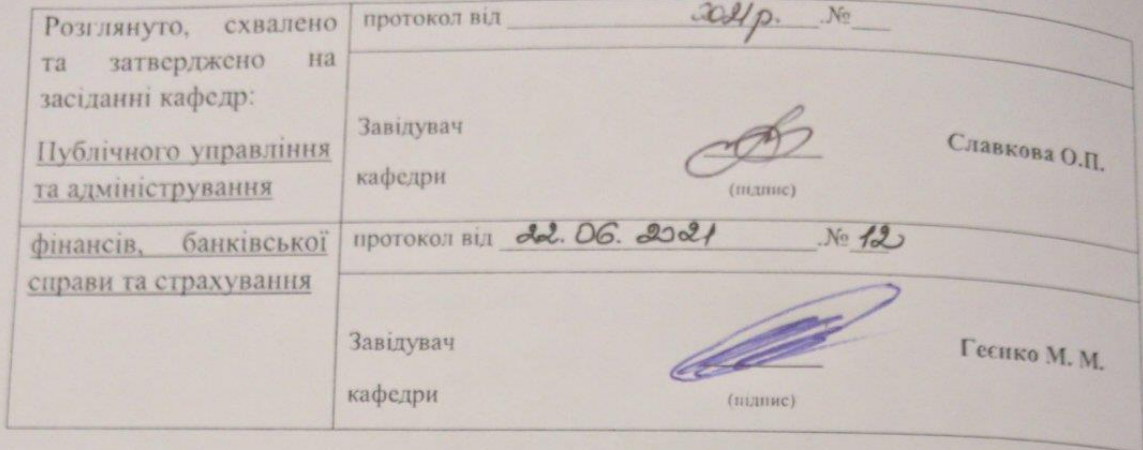 Розглянуто, схвалено
та затверджено на
засіданні кафедр:
Публічного управління
та адміністрування
протокол від 2021р. .№
Завідувач
кафедри
(підпис)
Славкова О.П.
фінансів, банківської
справи та страхування
протокол від 22. 06. 2021 .№ 12
Завідувач
кафедри
(підпис)
Геєнко М. М.